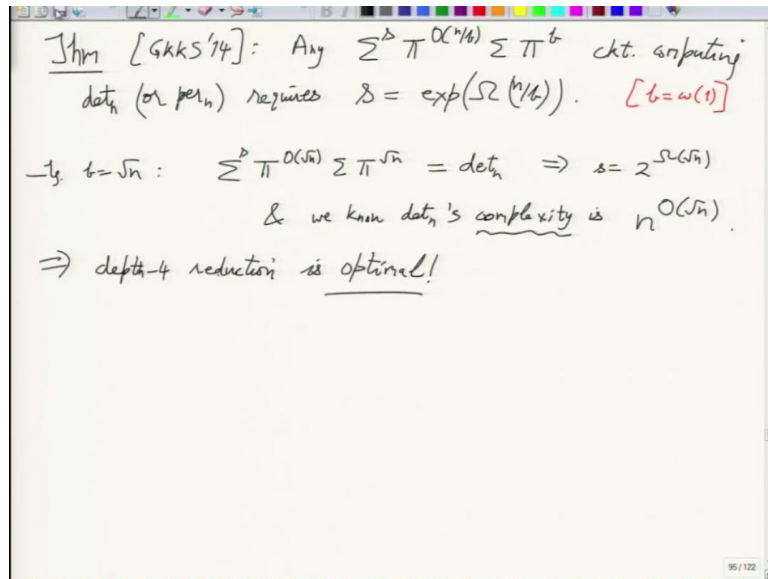 Thm [GKKS'14]: Any Σ^s Π^{O(n/b)} Σ Π^b ckt. computing
det_n (or per_n) requires s = exp(Ω(n/b)). [b=ω(1)]
b=√n: Σ^s Π^{O(√n)} Σ Π^{√n} = det_n ⇒ s= 2^{Ω(√n)}
& we know det_n's complexity is n^{O(√n)}.
⇒ depth-4 reduction is optimal!
95 / 122